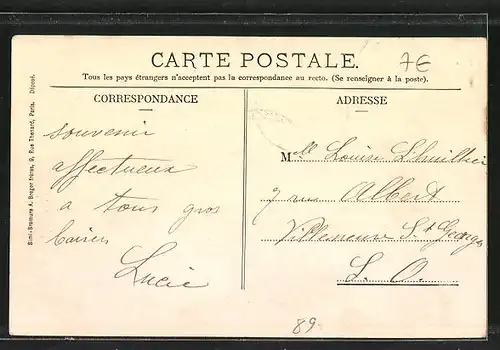 CARTE POSTALE.
7€
Tous les pays étrangers n'acceptent pas la correspondance au recto. (Se renseigner à la poste).
CORRESPONDANCE
ADRESSE
souvenir
affectueux
a tous gros
baisers
Lucie
Mlle Louise Lhuillier
7 rue Albert
Villeneuve St Georges
S. O.
89
Simi-Bromure A. Breger frères, 9, Rue Thénard, Paris. Déposé.